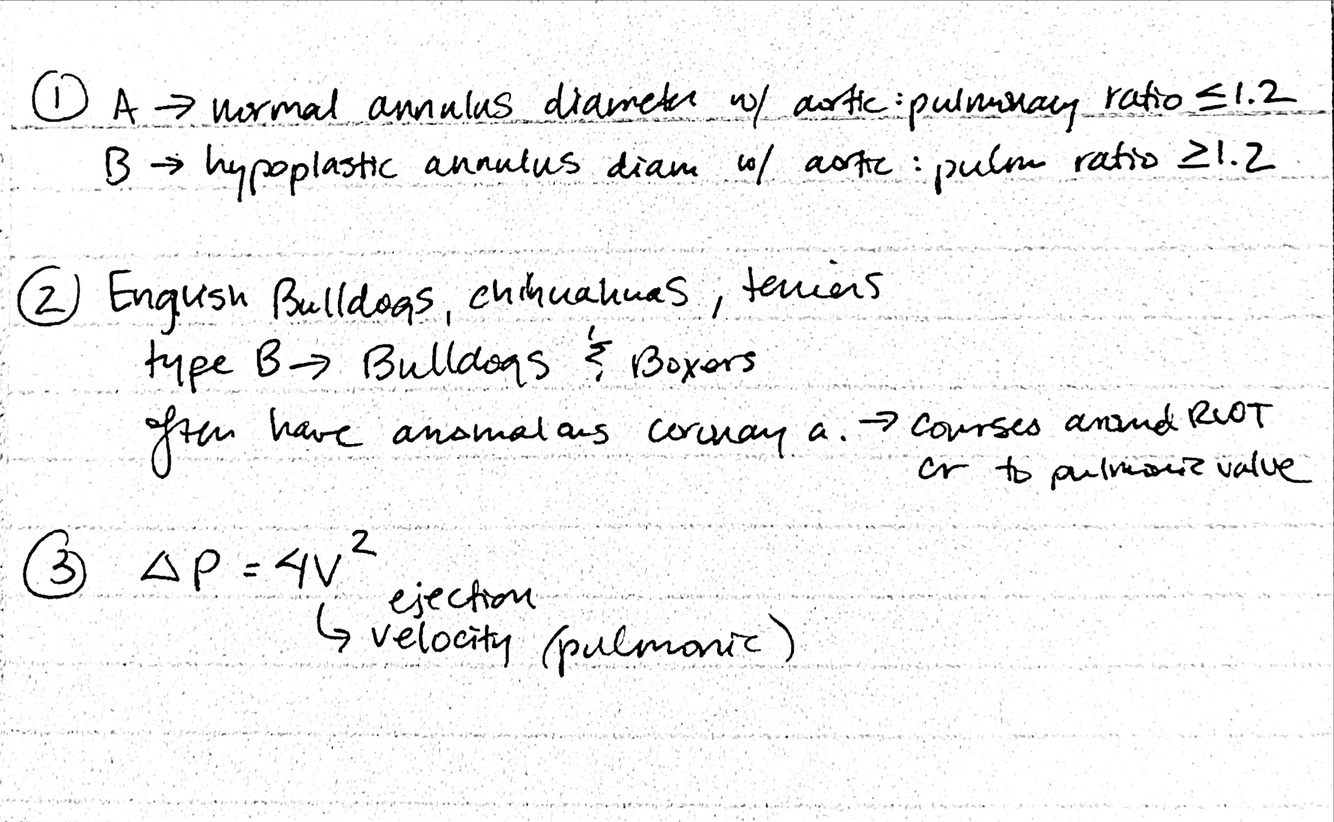 ① A → normal annulus diameter w/ aortic:pulmonary ratio ≤1.2
B → hypoplastic annulus diam w/ aortic : pulm ratio ≥1.2
② English Bulldogs, chihuahuas, terriers
type B → Bulldogs & Boxers
often have anomalous coronary a. → courses around RVOT
cr to pulmonic valve
③ ΔP = 4V²
ejection
↳ velocity (pulmonic)